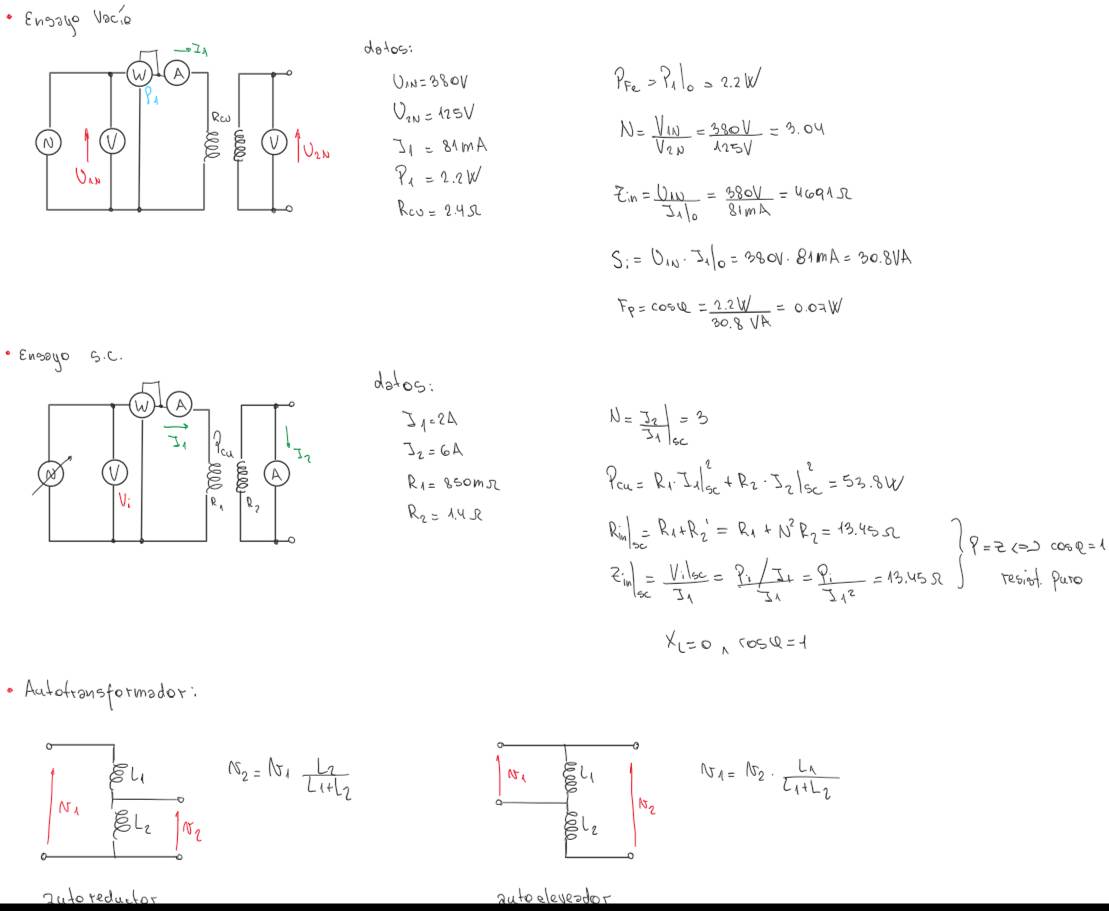 • Ensayo Vacío
W A → I1
P1
N V V
U1N
Rcu
U2N
datos:
U1N = 380V
U2N = 125V
I1 = 81mA
P1 = 2.2W
Rcu = 2.4Ω
PFe = P1|0 = 2.2W
N = V1N / V2N = 380V / 125V = 3.04
Zin = U1N / I1|0 = 380V / 81mA = 4691Ω
Si = U1N · I1|0 = 380V · 81mA = 30.8VA
Fp = cosφ = 2.2W / 30.8 VA = 0.07W
• Ensayo S.C.
W A
I1
Pcu
I2
N V A
Vi
R1 R2
datos:
I1 = 2A
I2 = 6A
R1 = 850mΩ
R2 = 1.4Ω
N = I2 / I1 |sc = 3
Pcu = R1 · I1|sc² + R2 · I2|sc² = 53.8W
Rin|sc = R1 + R2' = R1 + N² R2 = 13.45Ω
Zin|sc = Vi|sc / I1 = Pi / I1 / I1 = Pi / I1² = 13.45Ω
} P = Z <=> cosφ = 1
resist. puro
XL = 0 ∧ cosφ = 1
• Autotransformador:
v1
L1
L2
v2
v2 = v1 L2 / L1+L2
autoreductor
v1
L1
L2
v2
v1 = v2 · L1 / L1+L2
autoeleveador